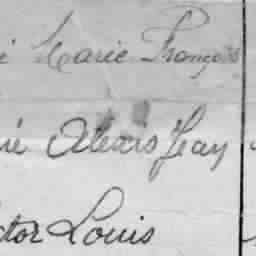 é Marie François
né Alexis Jean
ctor Louis